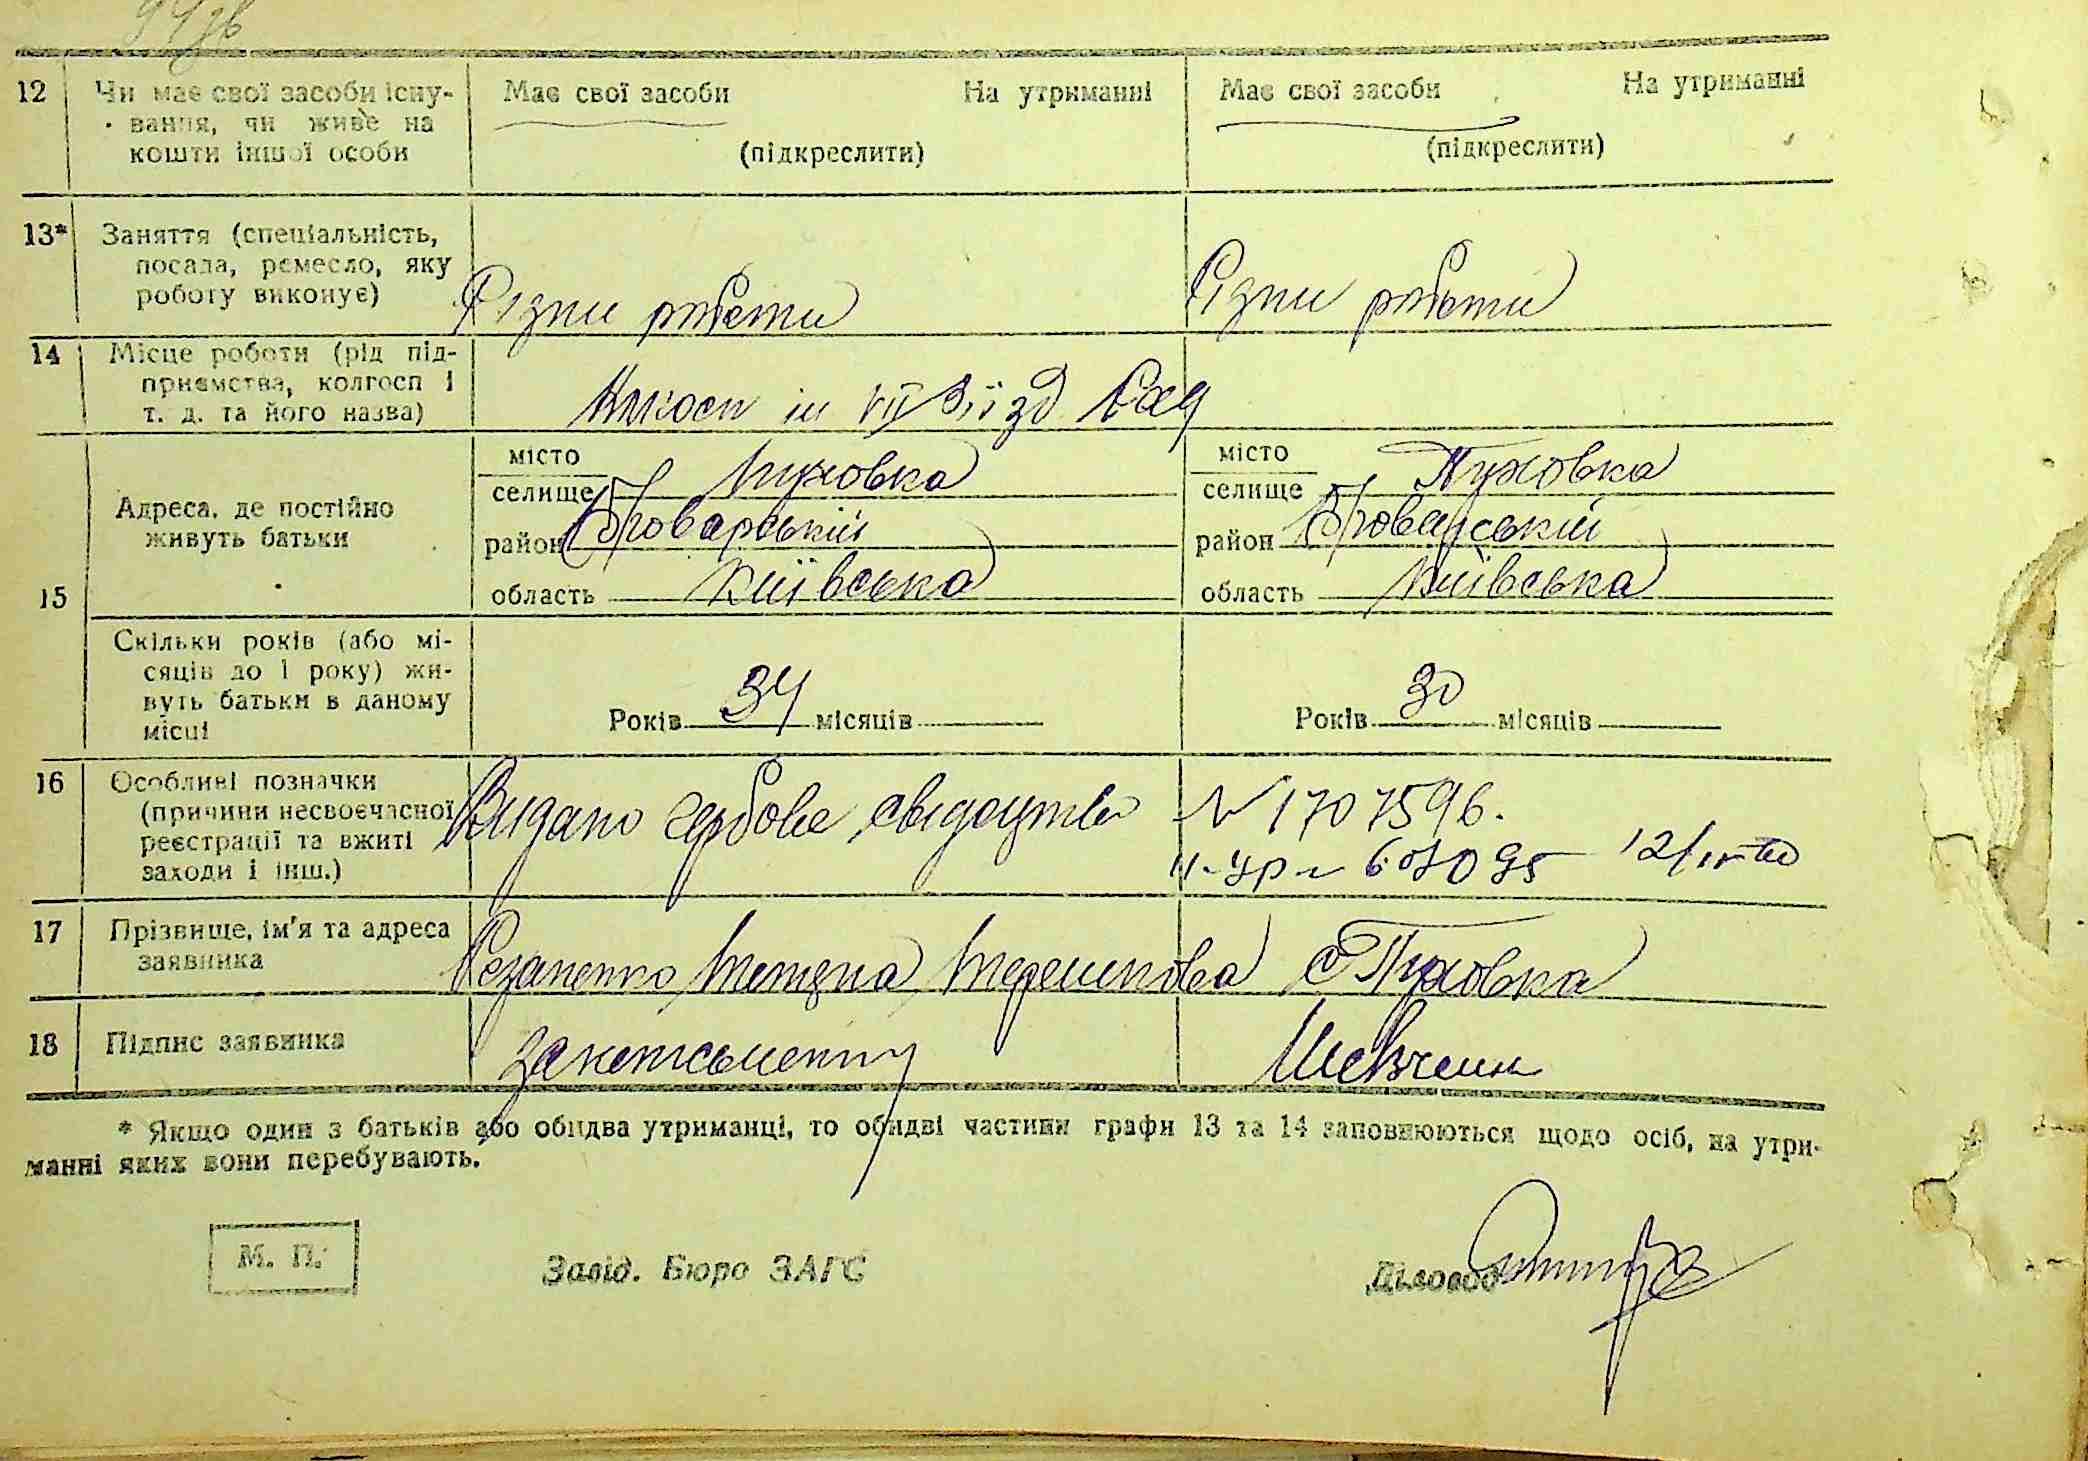 94 зв
12 Чи має свої засоби існу- Має свої засоби На утриманні Має свої засоби На утриманні
вання, чи живе на
кошти іншої особи (підкреслити) (підкреслити)
13* Заняття (спеціальність,
посада, ремесло, яку
роботу виконує) Різни роботи Різни роботи
14 Місце роботи (рід під-
приємства, колгосп і
т. д. та його назва) ім VII Зїізд Рад
15 Адреса, де постійно
живуть батьки
місто
селище Пуховка
район Броварський
область Київська
місто
селище Пуховка
район Броварський
область Київська
Скільки років (або мі-
сяців до 1 року) жи-
вуть батьки в даному
місці
Років 34 місяців Років 30 місяців
16 Особливі позначки
(причини несвоєчасної
реєстрації та вжиті
заходи і інш.)
Видано гербове свідоцтво N 1707596.
17 Прізвище, ім'я та адреса
заявника
Тетяна с Пуховка
18 Підпис заявника
* Якщо один з батьків або обидва утриманці, то обидві частини графи 13 та 14 заповнюються щодо осіб, на утри-
манні яких вони перебувають.
М. П.
Завід. Бюро ЗАГС Діловод